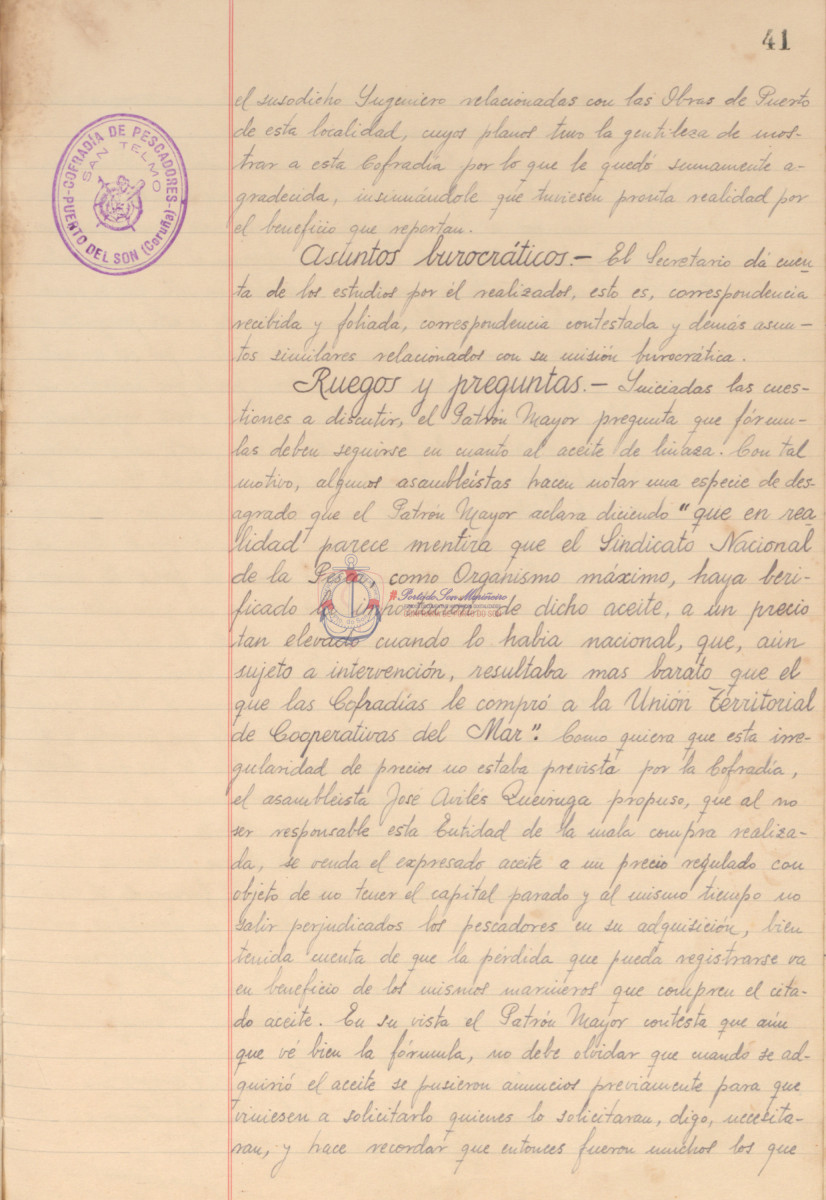 41
COFRADÍA DE PESCADORES
SAN TELMO
PUERTO DEL SON (Coruña)
el susodicho Yngeniero relacionadas con las Obras de Puerto
de esta localidad, cuyos planos tuvo la gentileza de mos-
trar a esta Cofradía por lo que le quedó sumamente a-
gradecida, insinuándole que tuviesen pronta realidad por
el beneficio que reportan.
Asuntos burocráticos.- El Secretario dá cuen-
ta de los estudios por él realizados, esto es, correspondencia
recibida y foliada, correspondencia contestada y demás asun-
tos similares relacionados con su misión burocrática.
Ruegos y preguntas.- Iniciadas las cues-
tiones a discutir, el Patrón Mayor pregunta que fórmu-
las deben seguirse en cuanto al aceite de linaza. Con tal
motivo, algunos asambleístas hacen notar una especie de des-
agrado que el Patrón Mayor aclara diciendo "que en rea-
lidad parece mentira que el Sindicato Nacional
de la Pesca, como Organismo máximo, haya beri-
ficado la importación de dicho aceite, a un precio
tan elevado cuando lo habia nacional, que, aún
sujeto a intervención, resultaba mas barato que el
que las Cofradías le compró a la Unión Territorial
de Cooperativas del Mar". Como quiera que esta irre-
gularidad de precios no estaba prevista por la Cofradía,
el asambleista José Avilés Queiruga propuso, que al no
ser responsable esta Entidad de la mala compra realiza-
da, se venda el expresado aceite a un precio regulado con
objeto de no tener el capital parado y al mismo tiempo no
salir perjudicados los pescadores en su adquisición, bien
tenida cuenta de que la pérdida que pueda registrarse va
en beneficio de los mismos marineros que compren el cita-
do aceite. En su vista el Patrón Mayor contesta que aún
que vé bien la fórmula, no debe olvidar que cuando se ad-
quirió el aceite se pusieron anuncios previamente para que
viniesen a solicitarlo quienes lo solicitaran, digo, necesita-
ran, y hace recordar que entonces fueron muchos los que
Porto do Son Mariñeiro